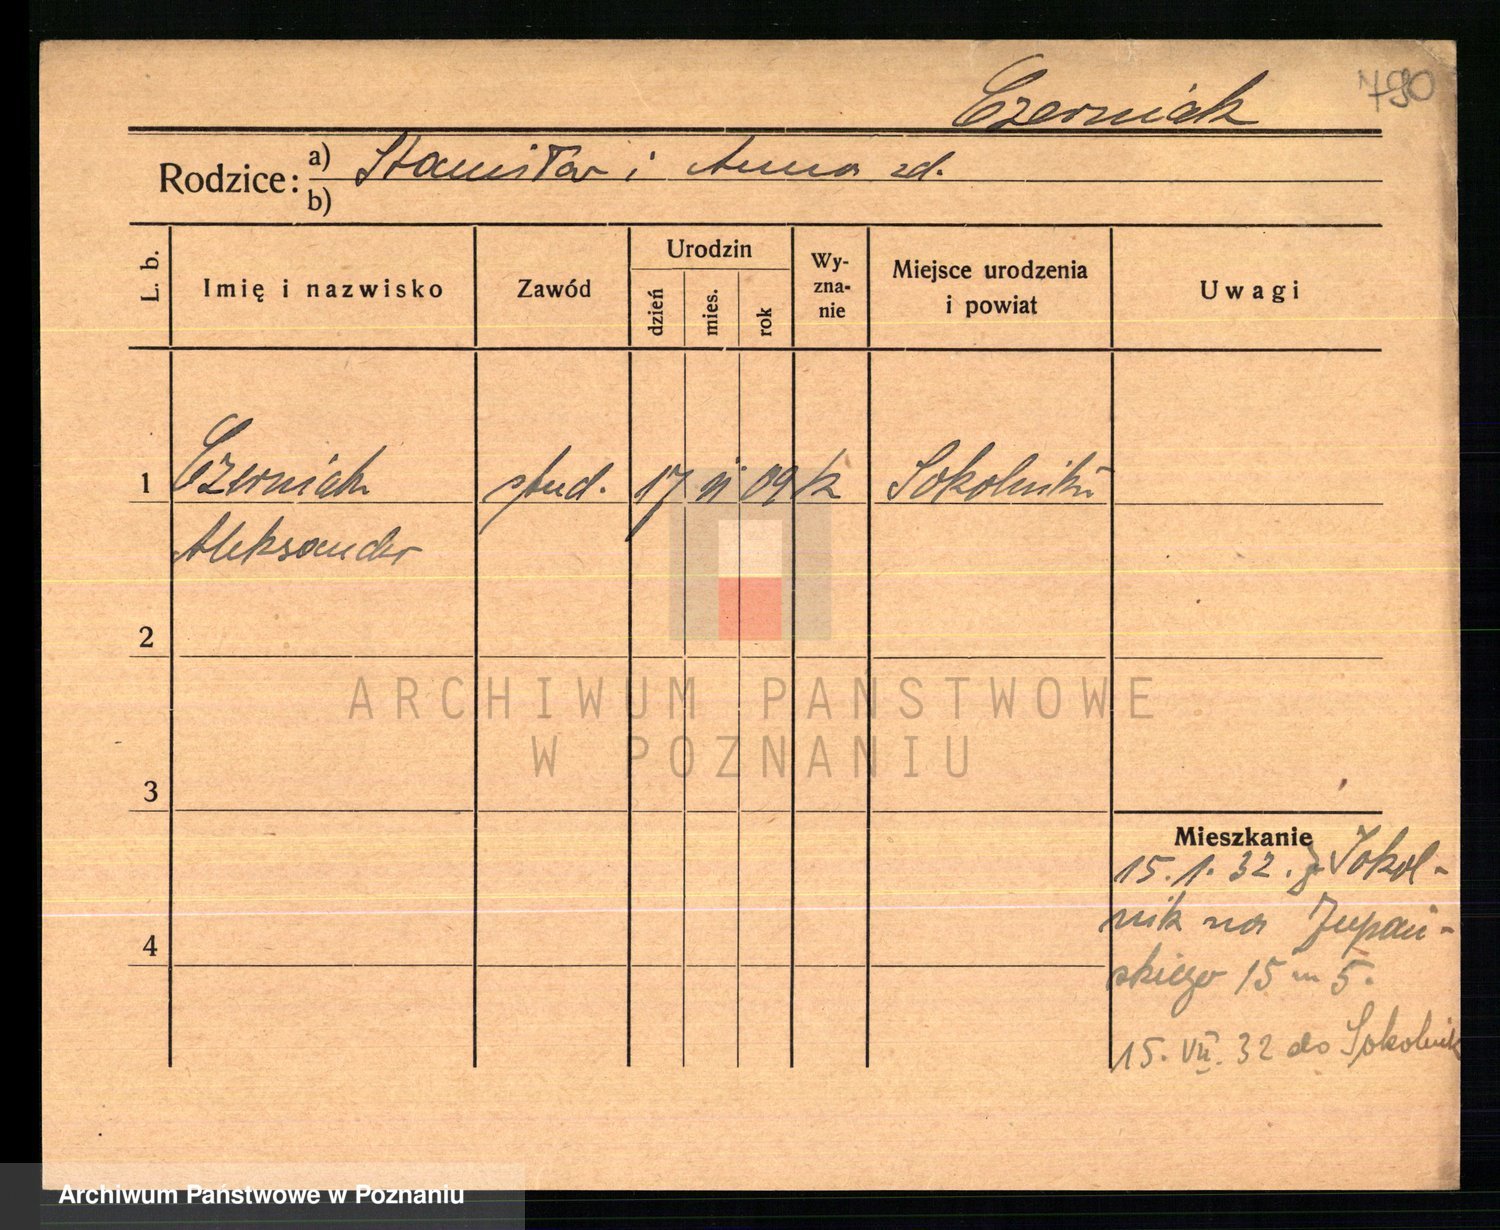 Czerniak
790
Rodzice: a) Stanisław i Anna zd.
b)
L. b.
Imię i nazwisko
Zawód
Urodzin
dzień
mies.
rok
Wy-
zna-
nie
Miejsce urodzenia
i powiat
Uwagi
1 Czerniak stud. 17 VI 09 k Sokolniki
Aleksander
2
ARCHIWUM PAŃSTWOWE
W POZNANIU
3
Mieszkanie
15.1.32. z Sokol-
nik na Żupań-
4
skiego 15 m 5.
15. VII. 32 do Sokolnik
Archiwum Państwowe w Poznaniu